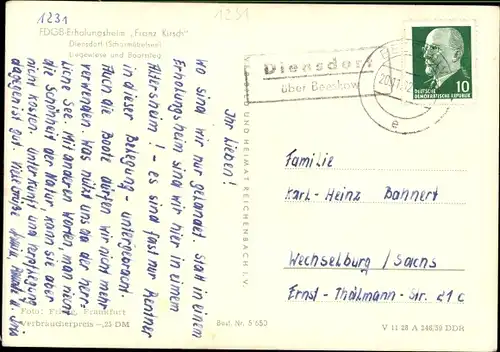 1231
1231
FDGB-Erholungsheim „Franz Kirsch"
Diensdorf (Scharmützelsee)
Liegewiese und Bootssteg
Ihr Lieben!
Wo sind wir nur gelandet. Statt in einem
Erholungsheim sind wir hier in einem
Altersheim! - es sind fast nur Rentner
in dieser Belegung - untergebracht.
Auch die Boote dürfen wir nicht mehr
verwenden. Was nützt uns da der herr-
liche See. Mit anderen Worten, man kann
die Schönheit der Natur
nicht kosten. Unterkunft und Verpflegung
dagegen ist gut. Viele Grüße
Foto: Frankfurt
Verbraucherpreis -,25 DM
Best. Nr. 5/650
VERLAG UND HEIMAT REICHENBACH I. V.
Diensdorf
über Beeskow
20.11.
e
DEUTSCHE
DEMOKRATISCHE REPUBLIK
10
Familie
Karl-Heinz Bahnert
Wechselburg / Sachs
Ernst-Thälmann-Str. 21 c
V 11 28 A 246/59 DDR